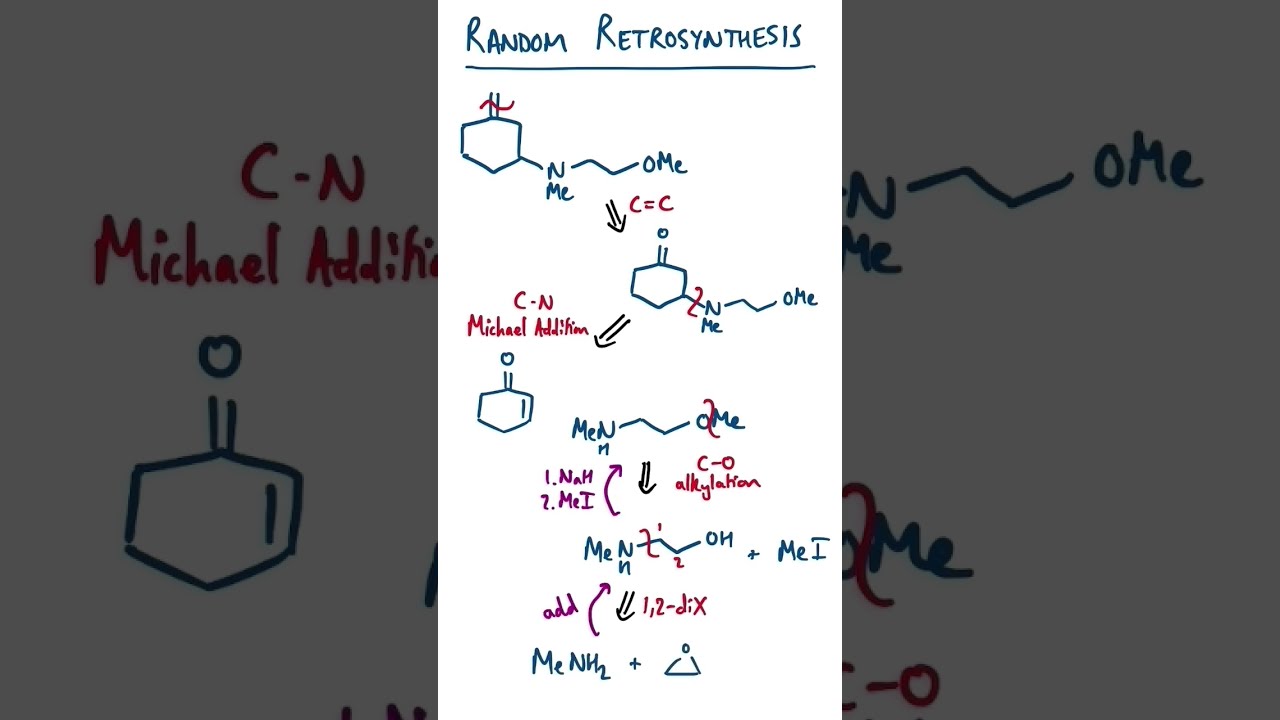 RANDOM RETROSYNTHESIS
N
Me
OMe
C=C
O
N
Me
OMe
C-N
Michael Addition
O
MeN
H
OMe
1. NaH
2. MeI
C-O
alkylation
MeN
H
1
2
OH
+ MeI
add
1,2-diX
MeNH2 + O
C-N
Michael Additi
O
N
Me
OMe
Me
C-O